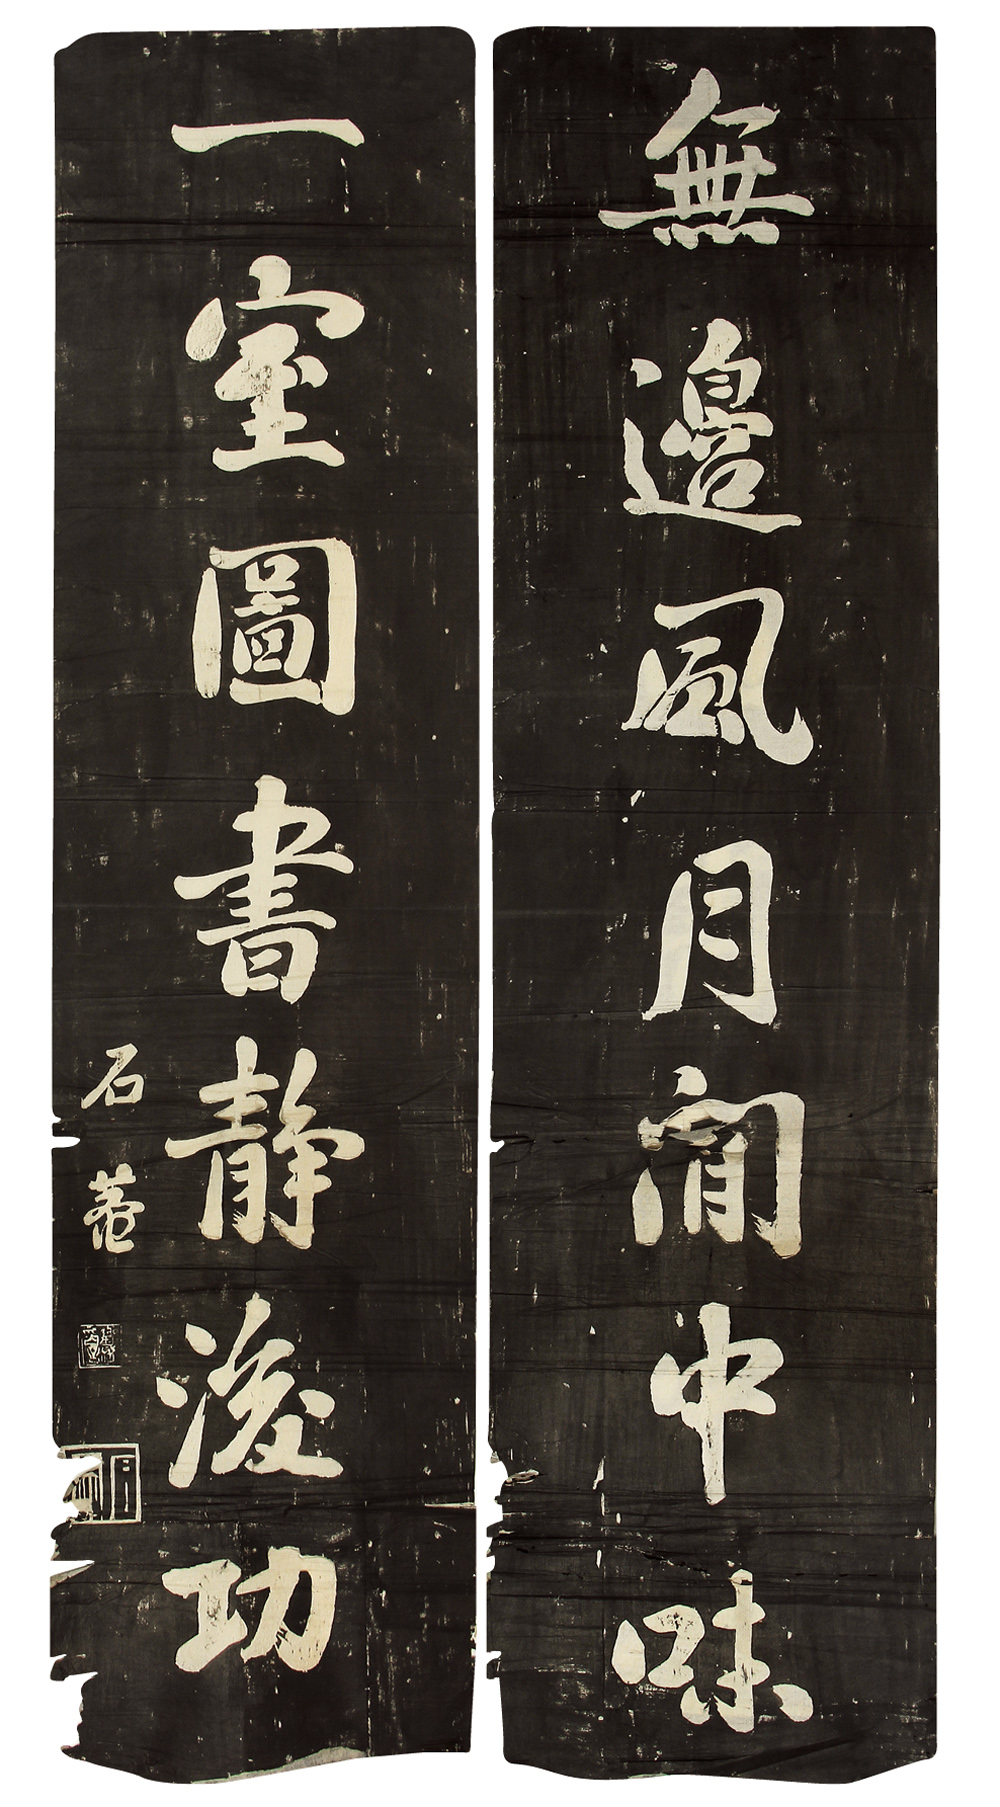 無邊風月閒中味
一室圖書靜後功
石菴